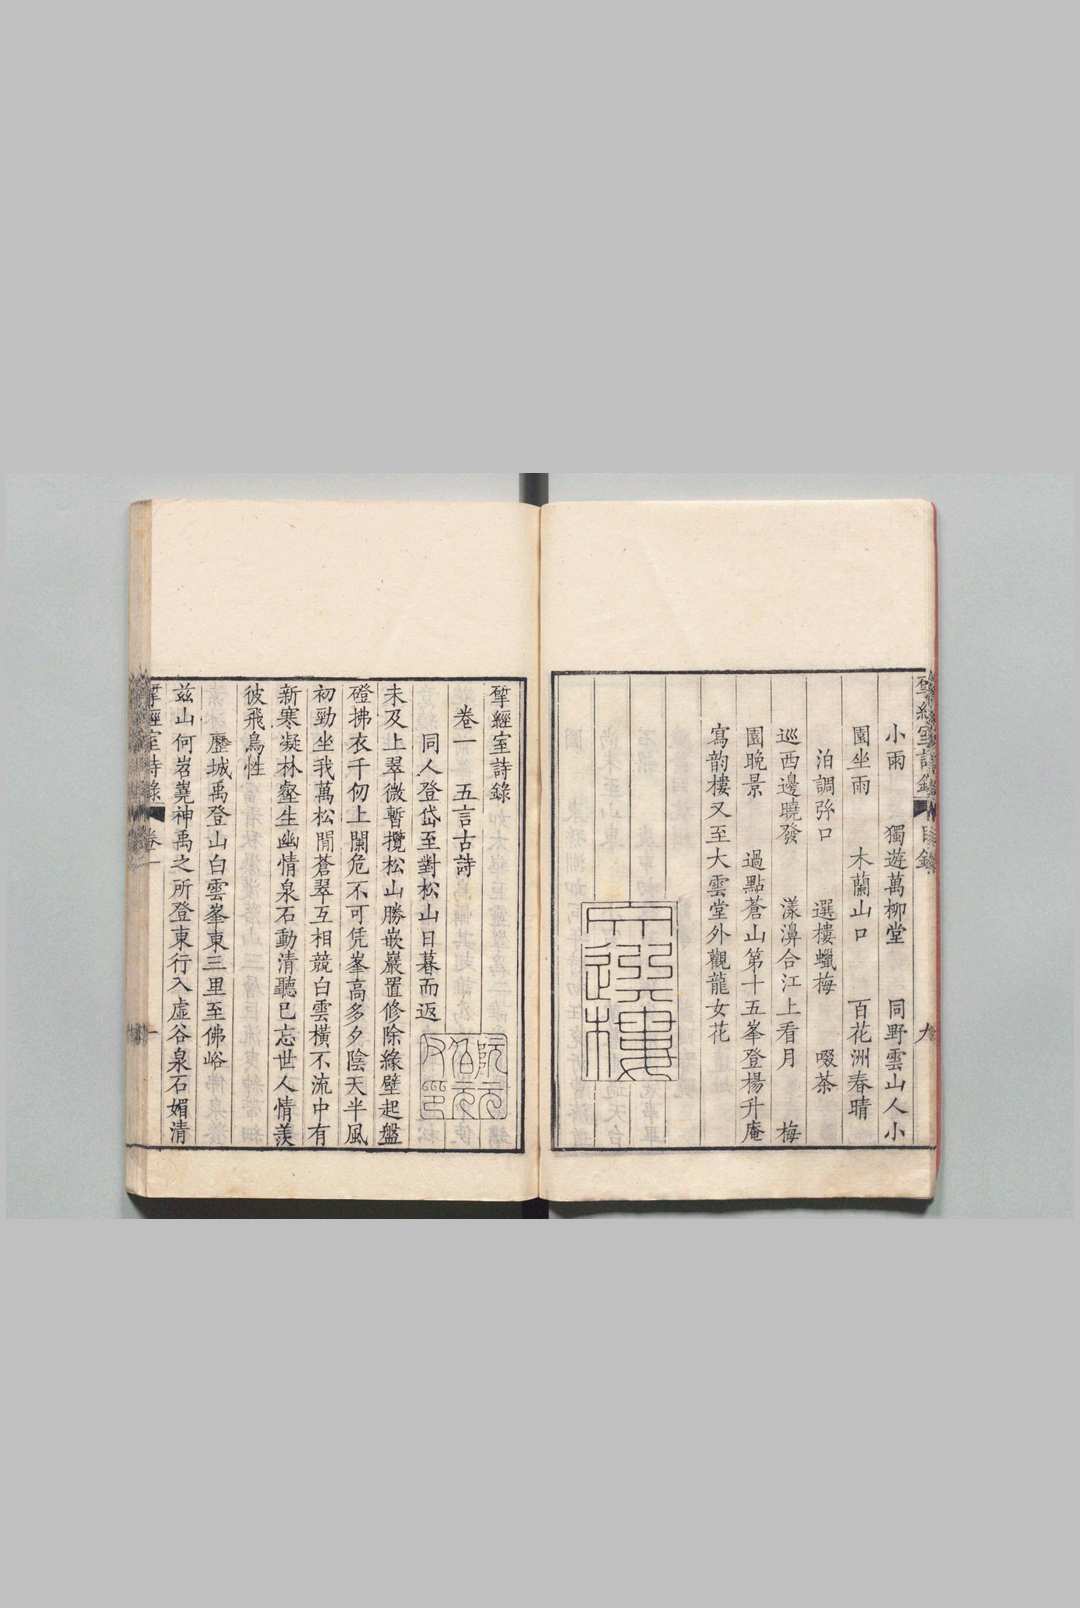 揅經室詩錄 目錄 九
小雨 獨遊萬柳堂 同野雲山人小
園坐雨 木蘭山口 百花洲春晴
泊調弥口 選樓蠟梅 啜茶
巡西邊曉發 漾濞合江上看月 梅
園晚景 過點蒼山第十五峯登楊升庵
寫韵樓又至大雲堂外觀龍女花
文選樓
揅經室詩錄
卷一 五言古詩
同人登岱至對松山日暮而返
阮元
伯元
父印
未及上翠微暫攬松山勝嵌巖置修除緣壁起盤
磴拂衣千仞上闌危不可凭峯高多夕陰天半風
初勁坐我萬松閒蒼翠互相競白雲橫不流中有
新寒凝林壑生幽情泉石動清聽已忘世人情羨
彼飛鳥性
歷城禹登山白雲峯東三里至佛峪
兹山何岧嶤神禹之所登東行入虛谷泉石媚清
揅經室詩錄 卷一 一